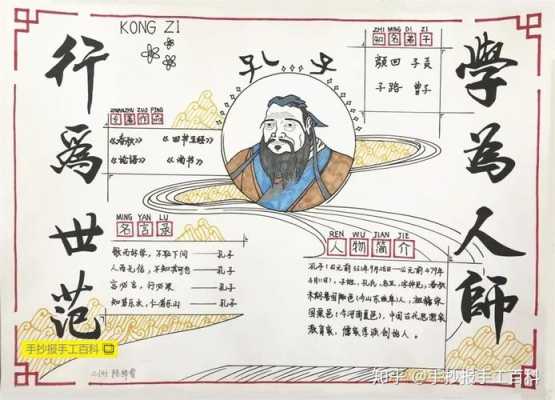 KONG ZI
孔子
學為人師
行爲世范
ZHI MING DI ZI
知名弟子
颜回 子贡
子路 曾子
ZHUANZHU ZUO PING
《春秋》 《四书五经》
《论语》 《尚书》
MING YAN LU
名言录
敏而好学，不耻下问——孔子
人而无信，不知其可也——孔子
言必信，行必果——孔子
知者乐水，仁者乐山——孔子
REN WU JIAN JIE
人物简介
孔子（公元前551年9月28日——公元前479年
4月11日），子姓，孔氏，名丘，字仲尼，春秋
末期鲁国陬邑（今山东曲阜）人，祖籍宋
国栗邑（今河南夏邑），中国古代思想家
教育家，儒家学派创始人。
手抄报手工百科
知乎 @手抄报手工百科